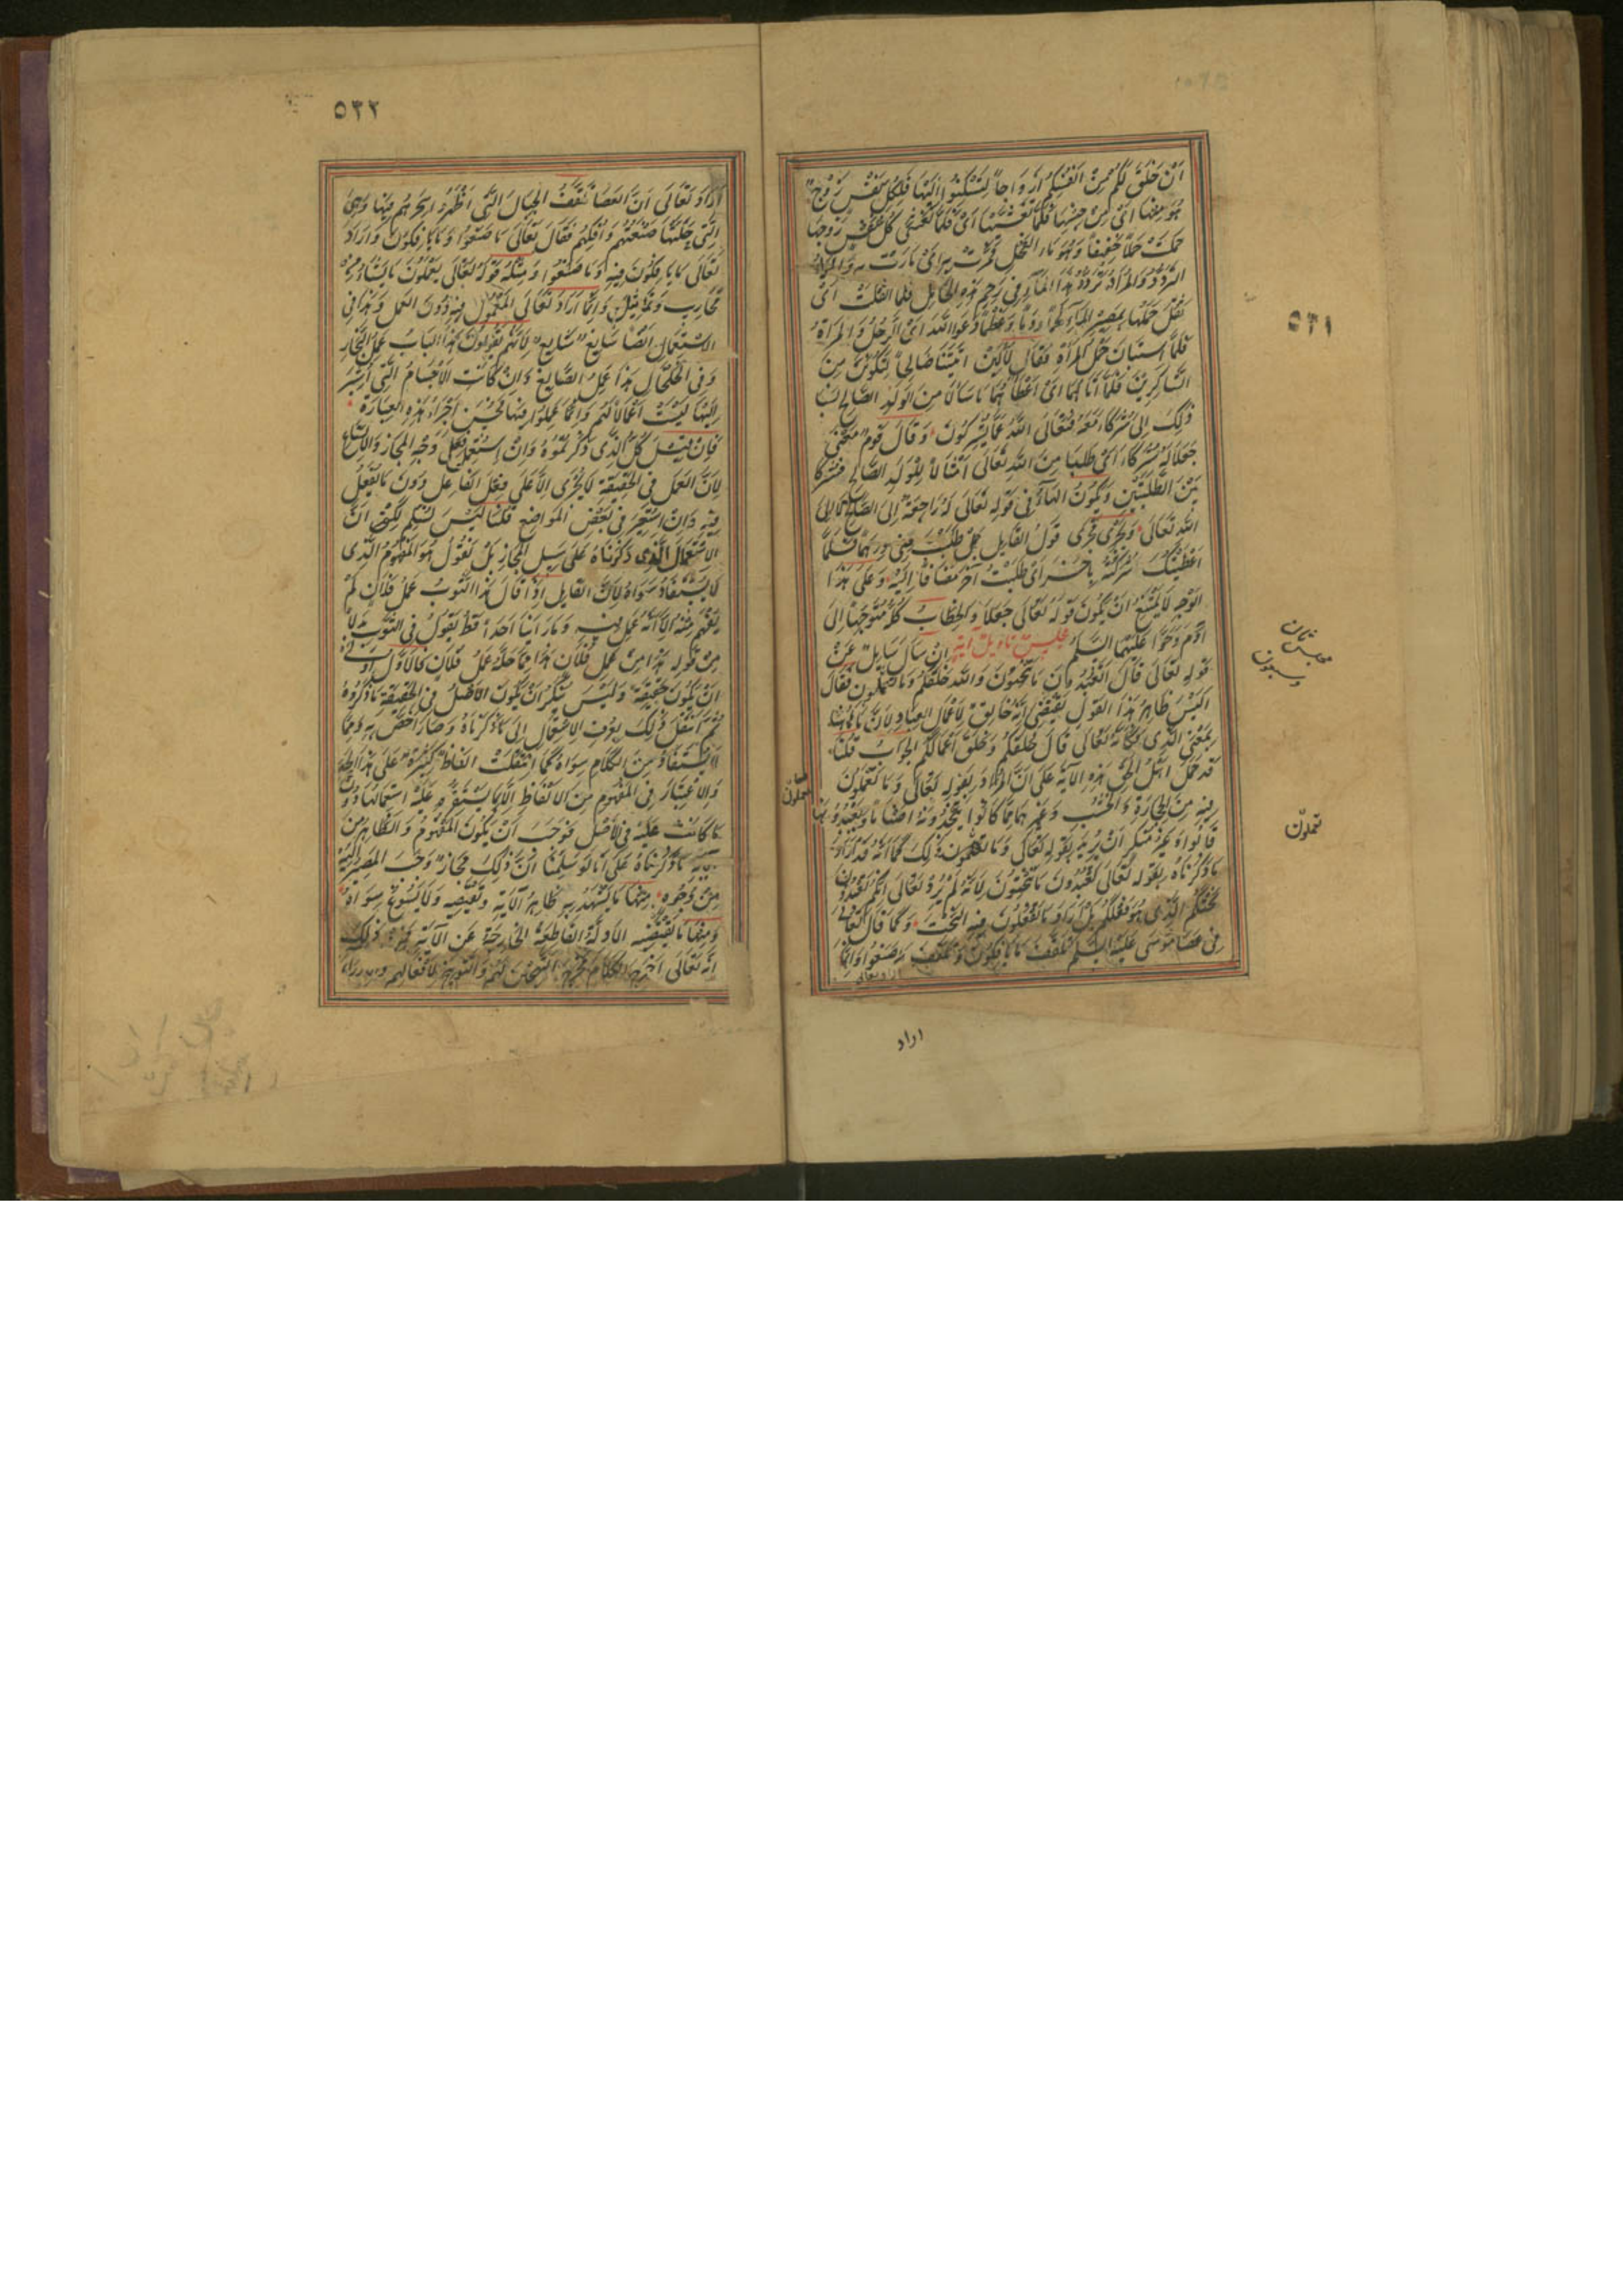 ٥٣١
أَنْ خَلَقَ لَكُمْ مِنْ أَنْفُسِكُمْ أَزْوَاجاً لِتَسْكُنُوا إِلَيْهَا فَلِكُلِّ نَفْسٍ زَوْجٌ
هُوَ مِنْهَا أَىْ مِنْ جِنْسِهَا فَلَمَّا تَغَشَّيهَا أَىْ فَلَمَّا تَغَشَّى كُلُّ نَفْسٍ زَوْجَهَا
حَمَلَتْ حَمْلاً خَفِيفاً وَهُوَ مَاء الفَحْلِ فَمَرَّتْ بِهِ أَىْ مَارَتْ بِهِ وَالمَوْرُ
التَّرَدُّدُ وَالمُرَادُ تَرَدُّدُ هَذَا المَآءِ فِي رَحِمِ هَذِهِ الحَامِلِ فَلَمَّا اثقَلَتْ أَىْ
ثَقُلَ حَمْلُهَا بِمَصِيرِ المَآءِ لَحْماً وَدَماً وَعَظْماً دَعَوَا اللهَ أَىْ الرَّجُلُ وَالمَرْأَةُ
فَلَمَّا اسْتَبَانَ حَمْلُ المَرْأَةِ فَقَالَ لَأَلَئِنْ آتَيْتَنَا صَالِحاً لَنَكُونَنَّ مِنَ
الشَّاكِرِينَ فَلَمَّا آتَاهُمَا أَىْ أَعْطَاهُمَا مَا سَأَلَا مِنَ الوَلَدِ الصَّالِحِ نَسَبَا
ذَلِكَ إِلَى شُرَكَاءَ مَعَهُ فَتَعَالَى اللهُ عَمَّا يُشْرِكُونَ وَقَالَ قَوْمٌ مَعْنَى
جَعَلَا لَهُ شُرَكَاءَ أَىْ طَلَبَا مِنَ اللهِ تَعَالَى أَمْثَالاً لِلْوَلَدِ الصَّالِحِ فَشَرَّكَا
بَيْنَ الطَّلِبَتَيْنِ وَيَكُونُ الهَآءُ فِي قَوْلِهِ تَعَالَى لَهُ رَاجِعَةً إِلَى الصَّالِحِ لَا إِلَى
اللهِ تَعَالَى وَيَجْرِى مَجْرَى قَوْلِ القَائِلِ طَلَبْتَ مِنِّى دِرْهَماً فَلَمَّا
أَعْطَيْتُكَ شَرَكْتَهُ بِآخَرَ أَىْ طَلَبْتَ آخَرَ مُضَافاً إِلَيْهِ وَعَلَى هَذَا
الوَجْهِ لَا يَمْتَنِعُ أَنْ يَكُونَ قَوْلُهُ تَعَالَى جَعَلَا وَالخِطَابُ كُلُّهُ مُتَوَجِّهاً إِلَى
آدَمَ وَحَوَّا عَلَيْهِمَا السَّلَامُ مَجْلِسٌ تَأْوِيلُ آيَةٍ إِنْ سَأَلَ سَائِلٌ عَنْ
قَوْلِهِ تَعَالَى قَالَ أَتَعْبُدُونَ مَا تَنْحِتُونَ وَاللهُ خَلَقَكُمْ وَمَا تَعْمَلُونَ فَقَالَ
أَلَيْسَ ظَاهِرُ هَذَا القَوْلِ يَقْتَضِى أَنَّهُ خَالِقٌ لِأَعْمَالِ العِبَادِ لِأَنَّ مَا هَاهُنَا
بِمَعْنَى الَّذِى فَكَأَنَّهُ تَعَالَى قَالَ خَلَقَكُمْ وَخَلَقَ أَعْمَالَكُمْ الجَوَابُ قُلْنَا
قَدْ حَمَلَ أَهْلُ الحَقِّ هَذِهِ الآيَةَ عَلَى أَنَّ المُرَادَ بِقَوْلِهِ تَعَالَى وَمَا تَعْمَلُونَ
فِيهِ مِنَ الحِجَارَةِ وَالخَشَبِ وَغَيْرِهِمَا مِمَّا كَانُوا يَتَّخِذُونَهُ أَصْنَاماً وَيَعْبُدُونَهَا
قَالُوا وَغَيْرُ مُنْكَرٍ أَنْ يُرِيدَ بِقَوْلِهِ تَعَالَى وَمَا تَعْمَلُونَ ذَلِكَ كَمَا أَنَّهُ قَدْ أَرَادَ
مَا ذَكَرْنَاهُ بِقَوْلِهِ تَعَالَى أَتَعْبُدُونَ مَا تَنْحِتُونَ لِأَنَّهُ لَمْ يُرِدْ تَعَالَى أَنَّكُمْ تَعْبُدُونَ
نَحْتَكُمُ الَّذِى هُوَ فِعْلُكُمْ بَلْ أَرَادَ مَا تَفْعَلُونَ فِيهِ النَّحْتَ وَكَمَا قَالَ تَعَالَى
فِى عَصَا مُوسَى عَلَيْهِ السَّلَمُ تَلْقَفُ مَا يَأْفِكُونَ وَتَلْقَفْ مَا صَنَعُوا وَإِنَّمَا
اراد تعالى
مجلس ثمان
وسبعون
تعملون
تعملون
اراد
٥٣٢
أَرَادَ تَعَالَى أَنَّ العَصَا تَلْقَفُ الحِبَالَ الَّتِى أَظْهَرُوا سِحْرَهُمْ فِيهَا وَهِىَ
الَّتِى حَلَّتْهَا صَنْعَتُهُمْ وَإِفْكُهُمْ فَقَالَ تَعَالَى مَا صَنَعُوا وَمَا يَأْفِكُونَ وَأَرَادَ
تَعَالَى مَا يَأْفِكُونَ فِيهِ وَمَا صَنَعُوا وَمِثْلُهُ قَوْلُهُ تَعَالَى يَعْمَلُونَ مَا يَشَاءُ مِنْ
مَحَارِيبَ وَتَمَاثِيلَ وَإِنَّمَا أَرَادَ تَعَالَى المَعْمُولَ فِيهِ دُونَ العَمَلِ وَهَذَا فِى
الاسْتِعْمَالِ أَيْضاً سَائِغٌ شَايِعٌ لِأَنَّهُمْ يَقُولُونَ هَذَا البَابُ عَمَلُ النَّجَّارِ
وَفِى الخَلْخَالِ هَذَا عَمَلُ الصَّائِغِ وَإِنْ كَانَتِ الأَجْسَامُ الَّتِى أُشِيرَ
إِلَيْهَا لَيْسَتْ أَعْمَالاً لَهُمْ وَإِنَّمَا عَمِلُوا فِيهَا فَحَسُنَ إِجْرَاءُ هَذِهِ العِبَارَةِ
فَإِنْ قِيلَ كُلُّ الَّذِى ذَكَرْتُمُوهُ وَإِنْ اسْتُعْمِلَ فَعَلَى وَجْهِ المَجَازِ وَالاتِّسَاعِ
لِأَنَّ العَمَلَ فِى الحَقِيقَةِ لَا يَجْرِى إِلَّا عَلَى فِعْلِ الفَاعِلِ دُونَ مَا يُفْعَلُ
فِيهِ وَإِنْ اسْتُعِيرَ فِى بَعْضِ المَوَاضِعِ قُلْنَا لَيْسَ نُسَلِّمُ لَكُمْ أَنَّ
الاسْتِعْمَالَ الَّذِى ذَكَرْنَاهُ عَلَى سَبِيلِ المَجَازِ بَلْ نَقُولُ هُوَ المَفْهُومُ الَّذِى
لَا يُسْتَفَادُ سِوَاهُ لِأَنَّ القَايِلَ إِذَا قَالَ هَذَا الثَّوْبُ عَمَلُ فُلَانٍ لَمْ
يُفْهَمْ مِنْهُ إِلَّا أَنَّهُ عَمِلَ فِيهِ وَمَا رَأَيْنَا أَحَداً قَطُّ يَقُولُ فِى الثَّوْبِ بَدَلاً
مِنْ قَوْلِهِ هَذَا مِنْ عَمَلِ فُلَانٍ هَذَا مِمَّا حَلَّهُ عَمَلُ فُلَانٍ فَالأَوَّلُ أَوْلَى
أَنْ يَكُونَ حَقِيقَةً وَلَيْسَ يُنْكَرُ أَنْ يَكُونَ الأَصْلُ فِى الحَقِيقَةِ مَا ذَكَرُوهُ
ثُمَّ انْتَقَلَ ذَلِكَ بِعُرْفِ الاسْتِعْمَالِ إِلَى مَا ذَكَرْنَاهُ وَصَارَ أَخَصَّ بِهِ وَمِمَّا
لَا يُسْتَفَادُ مِنَ الكَلَامِ سِوَاهُ كَمَا انْتَقَلَتْ أَلْفَاظٌ كَثِيرَةٌ عَلَى هَذَا الحَدِّ
وَالاعْتِبَارُ فِى المَفْهُومِ مِنَ الأَلْفَاظِ إِلَى مَا يَسْتَقِرُّ عَلَيْهِ اسْتِعْمَالُهَا دُونَ
مَا كَانَتْ عَلَيْهِ فِى الأَصْلِ فَوَجَبَ أَنْ يَكُونَ المَفْهُومُ وَالظَّاهِرُ مِنَ
الآيَةِ مَا ذَكَرْنَاهُ عَلَى أَنَّا لَوْ سَلَّمْنَا أَنَّ ذَلِكَ مَجَازٌ وَجَبَ المَصِيرُ إِلَيْهِ
مِنْ وُجُوهٍ مِنْهَا مَا يَشْهَدُ بِهِ ظَاهِرُ الآيَةِ وَيَقْتَضِيهِ وَلَا يَسُوغُ سِوَاهُ
وَمِنْهَا مَا يَقْتَضِيهِ الأَدِلَّةُ القَاطِعَةُ الخَارِجَةُ عَنِ الآيَةِ فَمِنْ ذَلِكَ
أَنَّهُ تَعَالَى أَخْرَجَ الكَلَامَ مَخْرَجَ التَّهْجِينِ لَهُمْ وَالتَّوْبِيخِ لِأَفْعَالِهِمْ